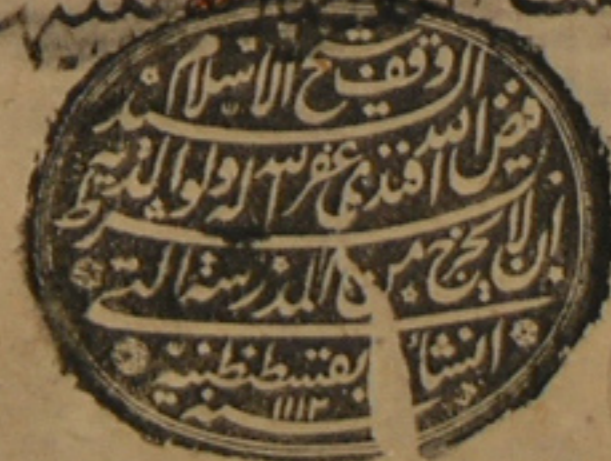 وقف شيخ الاسلام السيد
فيض الله افندي غفر الله له ولوالديه
بشرط ان لا يخرج من المدرسة التي
انشأها بقسطنطنية
سنة ١١١٢